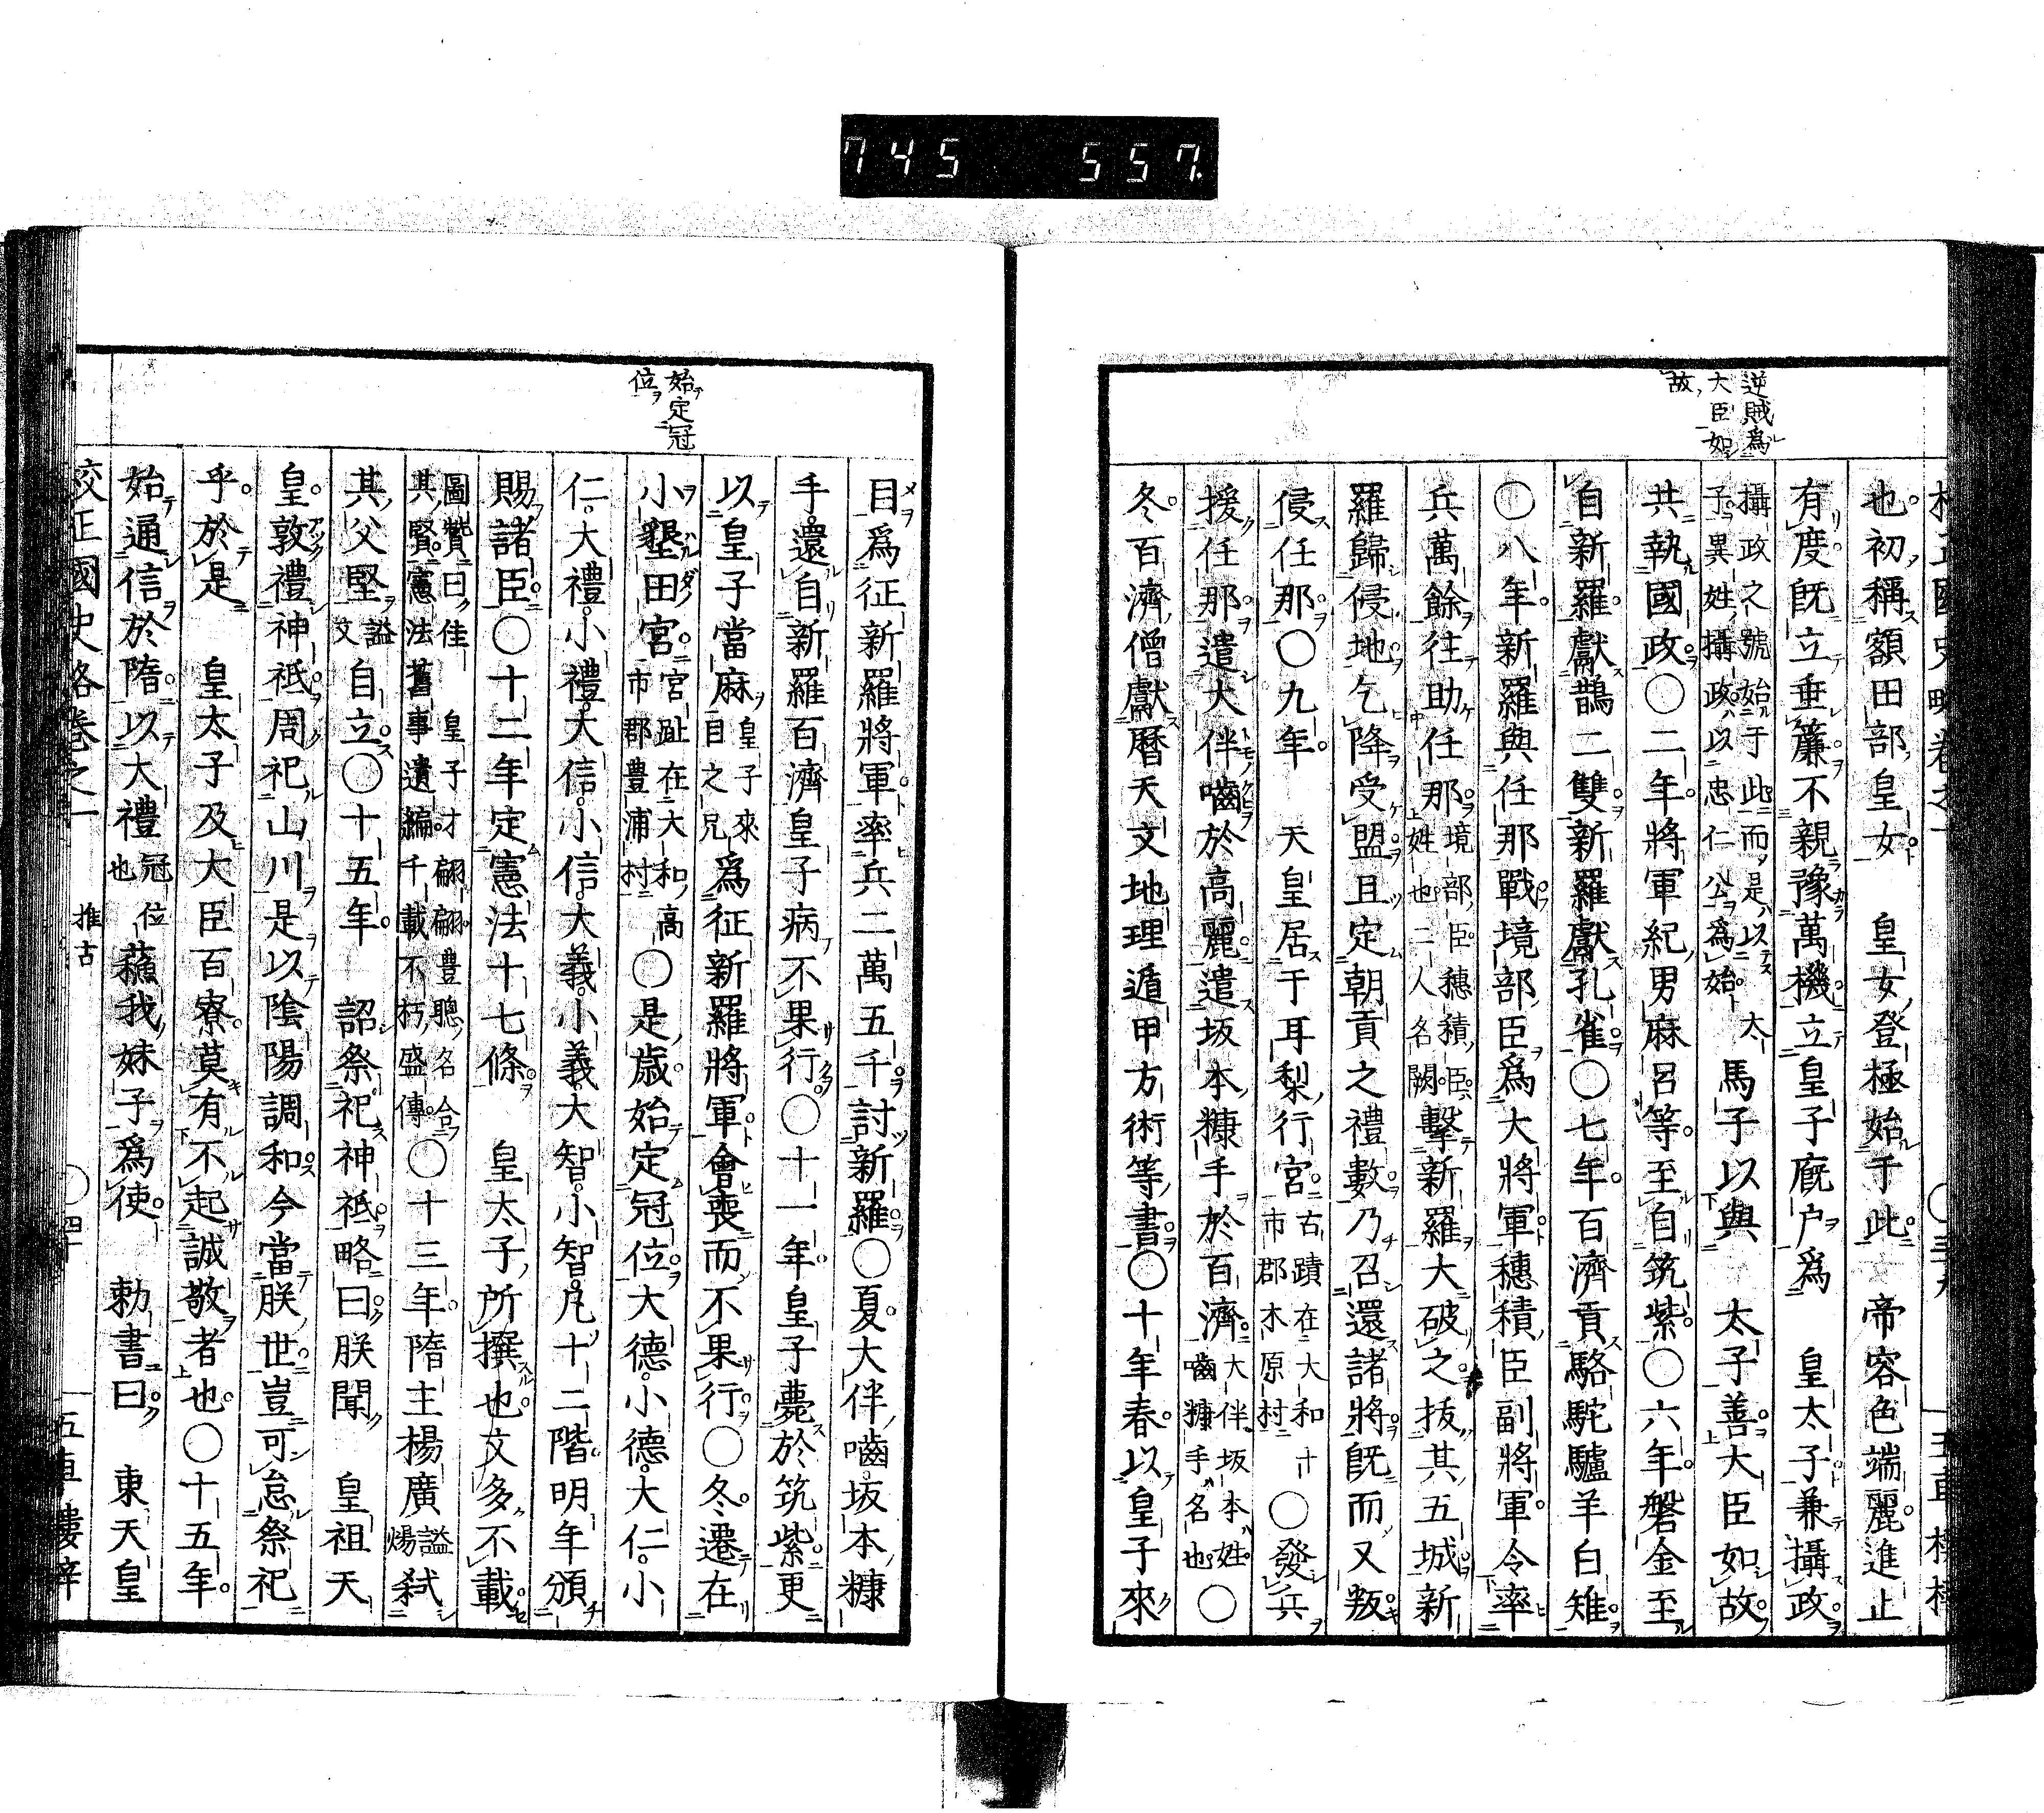 745 557
逆賊爲
大臣如
故
也初稱額田部皇女 皇女登極始于此 帝容色端麗進止
有度既立垂簾不親豫萬機立皇子廐戸爲 皇太子兼攝政
攝政之號始于此而是以 太
子異姓攝政以忠仁公爲始
馬子以與 太子善大臣如故
共執國政〇二年將軍紀男麻呂等至自筑紫〇六年磐金至
自新羅獻鵲二雙新羅獻孔雀〇七年百濟貢駱駝驢羊白雉
〇八年新羅與任那戰境部臣爲大將軍穗積臣副將軍令率
兵萬餘往助任那
境部臣穗積臣
姓也二人名闕
擊新羅大破之拔其五城新
羅歸侵地乞降受盟且定朝貢之禮數乃召還諸將既而又叛
侵任那〇九年 天皇居于耳梨行宮
古蹟在大和十
市郡木原村
〇發兵
援任那遣大伴嚙於高麗遣坂本糠手於百濟
大伴坂本姓
嚙糠手名也
〇
冬百濟僧獻曆天文地理遁甲方術等書〇十年春以皇子來
始定冠
位
目爲征新羅將軍率兵二萬五千討新羅〇夏大伴嚙坂本糠
手還自新羅百濟皇子病不果行〇十一年皇子薨於筑紫更
以皇子當麻
皇子來
目之兄
爲征新羅將軍會喪而不果行〇冬遷在
小墾田宮
宮趾在大和高
市郡豊浦村
〇是歲始定冠位大德小德大仁小
仁大禮小禮大信小信大義小義大智小智凡十二階明年頒
賜諸臣〇十二年定憲法十七條 皇太子所撰也文多不載
圖贊曰佳 皇子才翩翩豊聰名合
其賢憲法舊事遺編千載不朽盛傳
〇十三年隋主楊廣
謚
煬
弑
其父堅
謚
文
自立〇十五年 詔祭祀神祇略曰朕聞 皇祖天
皇敦禮神祇周祀山川是以陰陽調和今當朕世豈可怠祭祀
乎於是 皇太子及大臣百寮莫有不起誠敬者也〇十五年
始通信於隋以大禮
冠位
也
蘇我妹子爲使 勅書曰 東天皇
校正國史略卷之一 推古 〇四十 五車樓梓